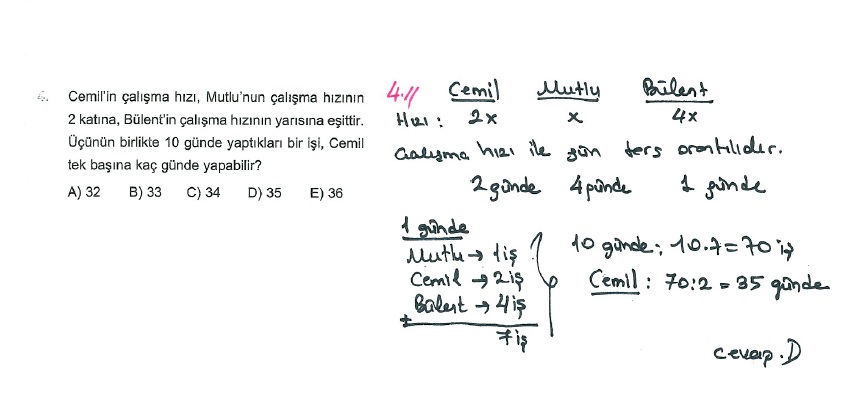 4. Cemil'in çalışma hızı, Mutlu'nun çalışma hızının
2 katına, Bülent'in çalışma hızının yarısına eşittir.
Üçünün birlikte 10 günde yaptıkları bir işi, Cemil
tek başına kaç günde yapabilir?
A) 32 B) 33 C) 34 D) 35 E) 36
4.// Cemil Mutlu Bülent
Hızı : 2x x 4x
Çalışma hızı ile gün ters orantılıdır.
2 günde 4 günde 1 günde
1 günde
Mutlu → 1 iş
Cemil → 2 iş
Bülent → 4 iş
+
7 iş
10 günde : 10.7 = 70 iş
Cemil : 70:2 = 35 günde
cevap.D